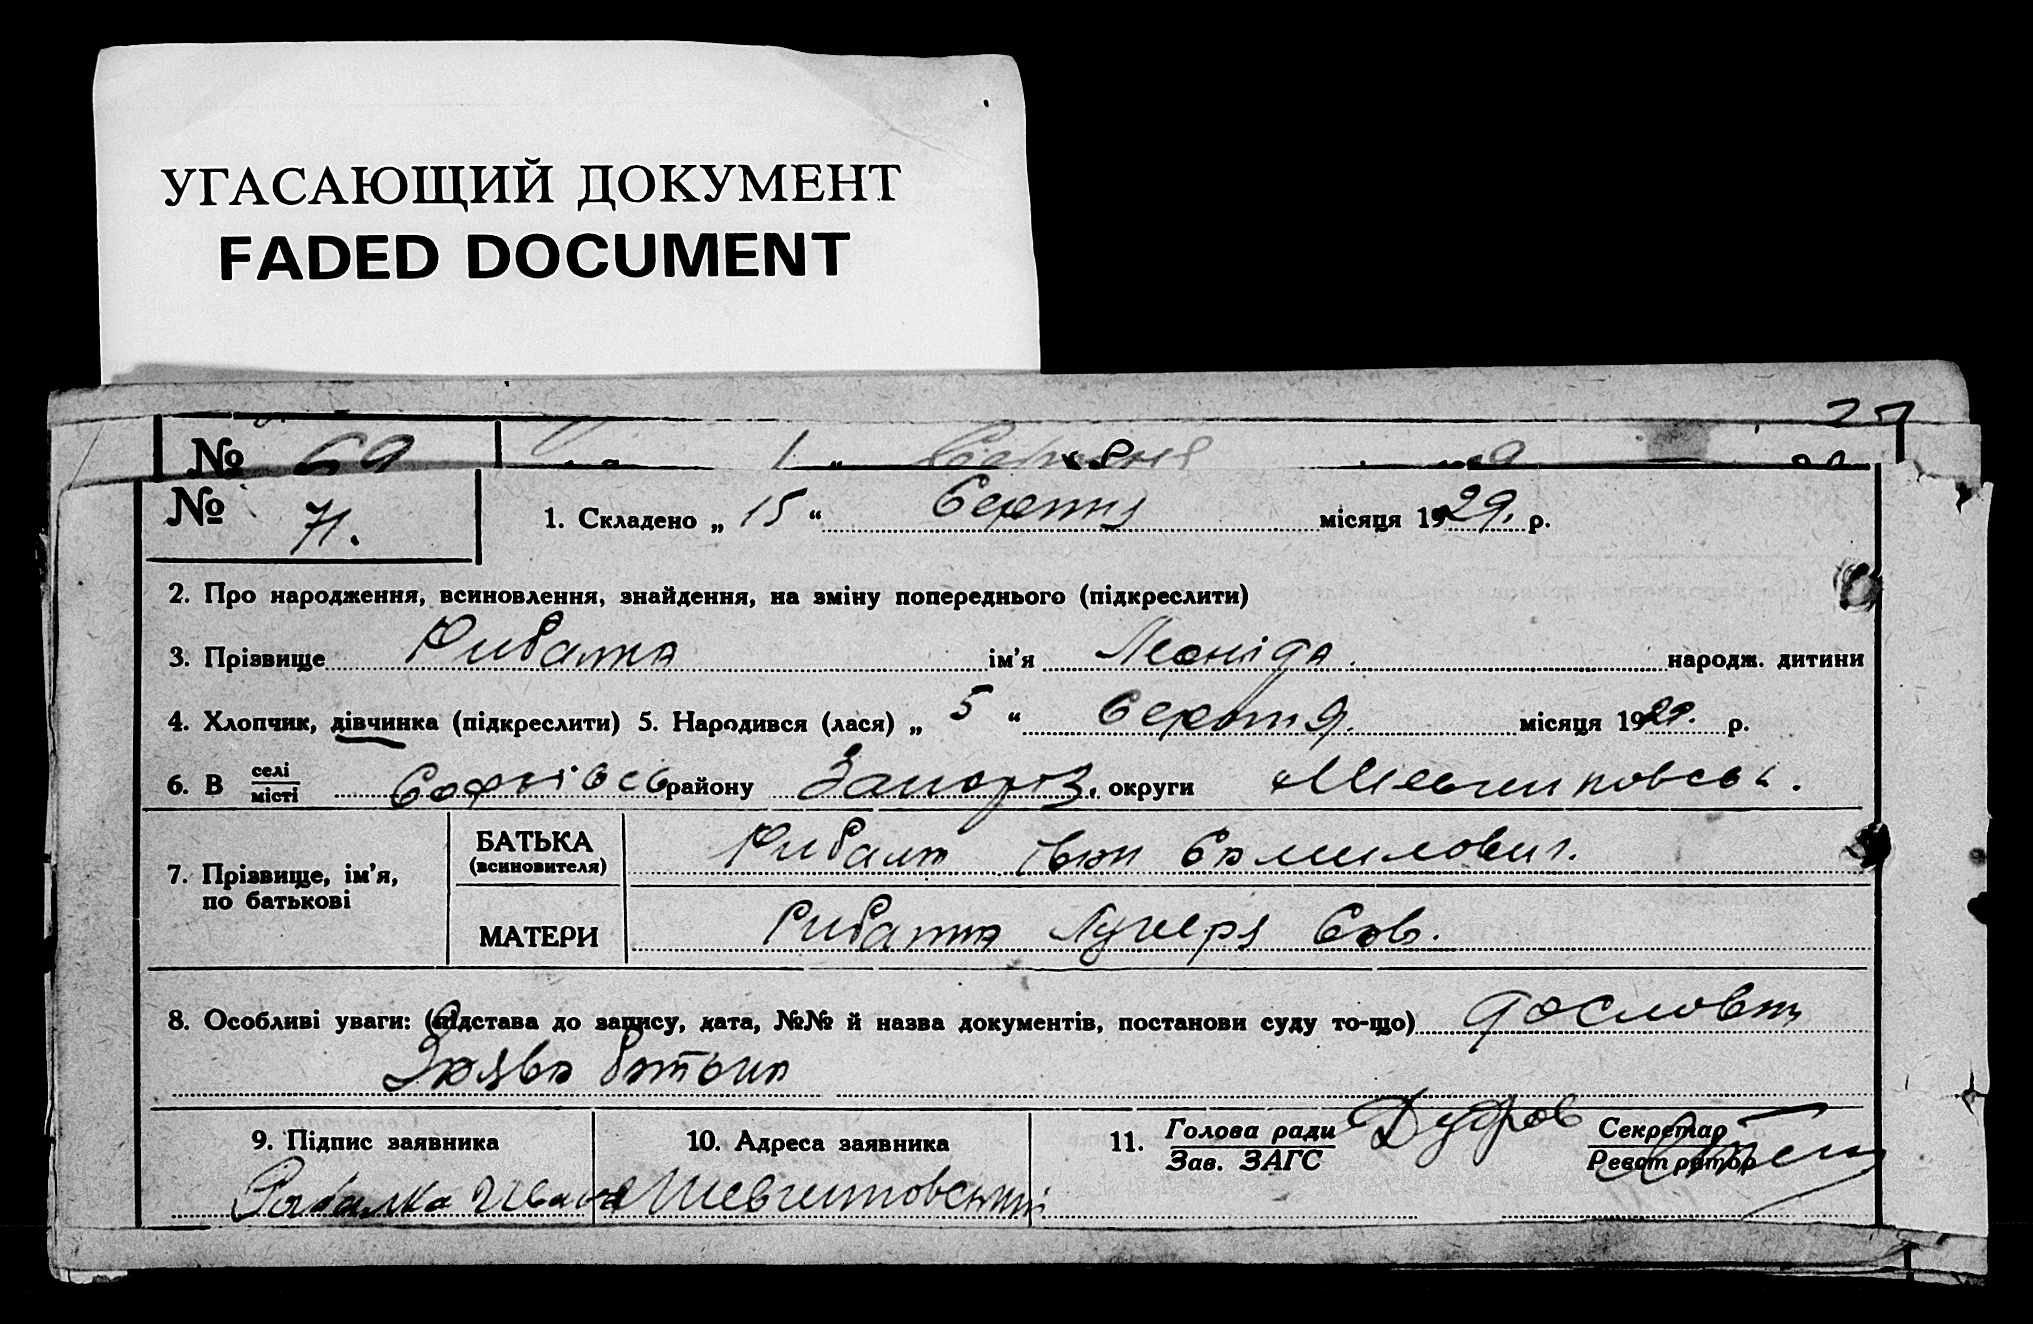 УГАСАЮЩИЙ ДОКУМЕНТ
FADED DOCUMENT
№ 69 1 Серпня
№ 71. 1. Складено „ 15 “ Серпня місяця 1929. р.
2. Про народження, всиновлення, знайдення, на зміну попереднього (підкреслити)
3. Прізвище Рибалка ім’я Леоніда народж. дитини
4. Хлопчик, дівчинка (підкреслити) 5. Народився (лася) „ 5 “ Серпня місяця 1929. р.
6. В селі місті Софіівсь району Запоріз. округи
7. Прізвище, ім’я, по батькові
БАТЬКА (всиновителя) Рибалка Іван Самилович.
МАТЕРИ Рибалка Лукеря Сав.
8. Особливі уваги: (підстава до запису, дата, №№ й назва документів, постанови суду то-що)
Заява батька
9. Підпис заявника 10. Адреса заявника 11. Голова ради Зав. ЗАГС Секретар Реєстратор
Рибалка Иван